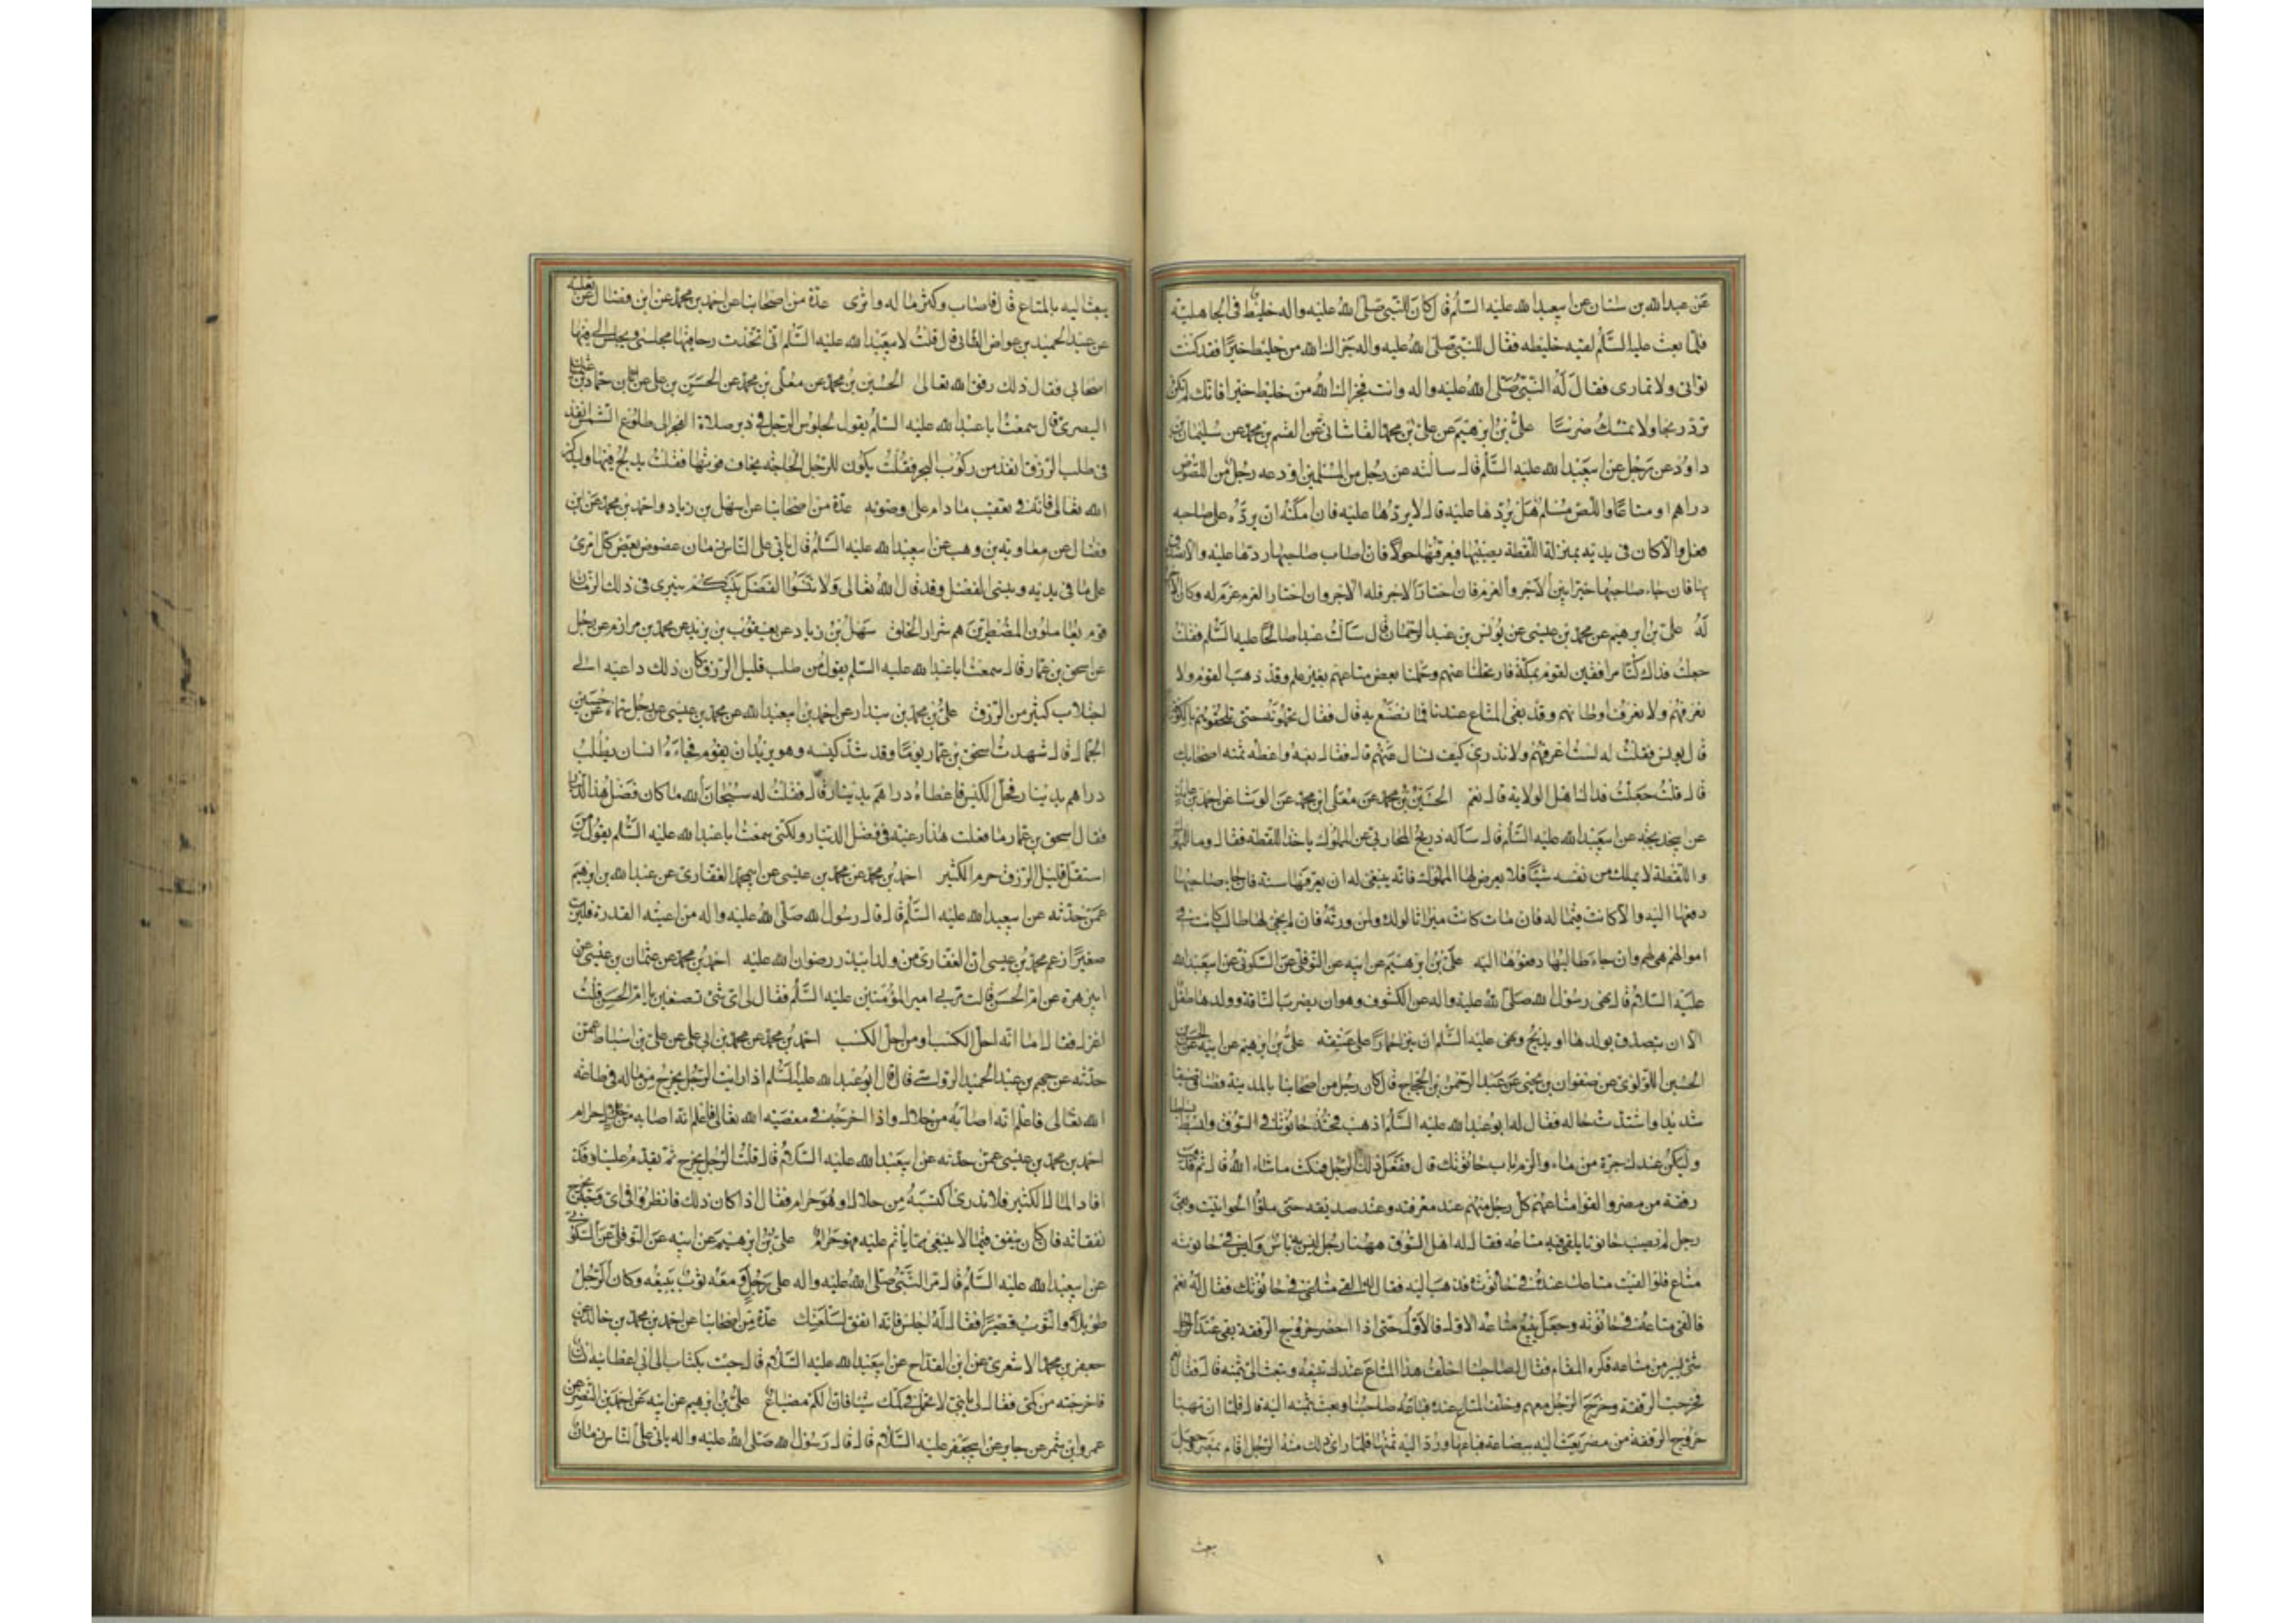 عن عبدالله بن سنان عن ابيعبدالله عليه السلم قال كان للنبى صلى الله عليه واله خليط فى الجاهلية
فلما بعث عليه السلم لقيه خليطه فقال للنبى صلى الله عليه واله جزاك الله من خليط خيرا فقد كنت
تواتى ولا تمارى فقال له النبى صلى الله عليه واله وانت فجزاك الله من خليط خيرا فانك لم تكن
ترد ربحا ولا تمسك ضرسا على بن ابرهيم عن على بن محمد القاشانى عن القسم بن محمد عن سليمان بن
داود عن رجل عن ابيعبدالله عليه السلم قال سالته عن رجل من المسلمين اودعه رجل من اللصوص
دراهم او متاعا واللص مسلم هل يرد ها عليه قال لا يردها عليه فان امكنه ان يرده على صاحبه
فعل والا كان فى يديه بمنزلة اللقطة يصيبها فيعرفها حولا فان اصاب صاحبها ردها عليه والا تصدق
بها فان جاء صاحبها خيره بين الاجر والغرم فان اختار الاجر فله الاجر وان اختار الغرم غرم له وكان الاجر
له على بن ابرهيم عن محمد بن عيسى عن يونس بن عبدالرحمان قال سالت عبدا صالحا عليه السلم فقلت
جعلت فداك كنا مرافقين لقوم بمكة فارتحلنا عنهم وحملنا بعض متاعهم بغير علم وقد ذهب القوم ولا
نعرفهم ولا نعرف اوطانهم وقد بقى المتاع عندنا فما نصنع به قال فقال تحملونه حتى تلحقوهم بالكوفة
قال يونس فقلت له لست اعرفهم ولا ندرى كيف نسال عنهم قال فقال بعه واعطه ثمنه اصحابك
قال قلت جعلت فداك اهل الولاية قال نعم الحسين بن محمد عن معلى بن محمد عن الوشا عن احمد بن عايذ
عن ابيخديجة عن ابيعبدالله عليه السلم قال ساله ذريح المحاربى عن المملوك ياخذ اللقطة فقال وما للمملوك
واللقطة لا يملك من نفسه شيئا فلا يعرض لها المملوك فانه ينبغى له ان يعرفها سنة فان جاء صاحبها
دفعها اليه والا كانت فى ماله فان مات كانت ميراثا لولده ولمن ورثه فان لم يجئ لها طالب كانت فى
اموالهم هى لهم وان جاء طالبها دفعوها اليه على بن ابرهيم عن ابيه عن النوفلى عن السكونى عن ابيعبدالله
عليه السلام قال نهى رسول الله صلى الله عليه واله عن الكشوف وهو ان يضرب الناقة وولدها طفل
الا ان يتصدق بولدها او يذبح ونهى عليه السلم ان ينزى حمارا على عتيقة على بن ابرهيم عن ابيه عن الحسن بن
الحسين اللؤلؤى عن صفوان بن يحيى عن عبدالرحمن بن الحجاج قال كان رجل من اصحابنا بالمدينة فضاق ضيقا
شديدا واشتدت حاله فقال له ابو عبدالله عليه السلم اذهب فخذ حانوتا فى السوق وابسط بساطا
وليكن عندك جرة من ماء والزم باب حانوتك قال ففعل ذلك الرجل فمكث ماشاء الله قال ثم قدمت
رفقة من مصر والقوا متاعهم كل رجل منهم عند معرفته وعند صديقه حتى ملؤا الحوانيت وبقى
رجل لم يصب حانوتا يلقى فيه متاعه فقال له اهل السوق ههنا رجل ليس به باس وليس فى حانوته
متاع فلو القيت متاعك عنده فى حانوته فذهب اليه فقال له القى متاعى فى حانوتك فقال له نعم
فالقى متاعه فى حانوته وجعل يبيع متاعه الاول فالاول حتى اذا حضر خروج الرفقة بقى عند الرجل
شئ يسير من متاعه فكره المقام فقال لصاحبنا اخلف هذا المتاع عندك تبيعه وتبعث الى بثمنه قال فقال نعم
فخرجت الرفقة وخرج الرجل معهم وخلف المتاع عنده فباعه صاحبنا وبعث بثمنه اليه قال فلما ان تهيا
خروج الرفقة من مصر بعث اليه ببضاعة فباعها ورد اليه ثمنها فلما راى ذلك منه الرجل اقام بمصر وجعل
يبعث
يبعث اليه بالمتاع قال فاصاب وكثر ماله واثرى عدة من اصحابنا عن احمد بن محمد عن ابن فضال عن ثعلبة
عن عبدالحميد بن عواض الطائى قال قلت لابيعبدالله عليه السلم انى اتخذت رحا فيها مجلسى ويجلس الى فيها
اصحابى فقال ذلك رفق الله تعالى الحسين بن محمد عن معلى بن محمد عن الحسن بن على عن حماد بن عثمان
البصرى قال سمعت ابا عبدالله عليه السلم يقول لجلوس الرجل فى دبر صلاة الفجر الى طلوع الشمس انفذ
فى طلب الرزق انفذ من ركوب البحر فقلت يكون للرجل الحاجة يخاف فوتها فقلت يدلج فيها وليذكر
الله تعالى فانه فى تعقيب ما دام على وضوئه عدة من اصحابنا عن سهل بن زياد واحمد بن محمد عن ابن
فضال عن معاوية بن وهب عن ابيعبدالله عليه السلم قال ياتى على الناس زمان عضوض يعض كل امرئ
على ما فى يديه وينسى الفضل وقد قال الله تعالى ولا تنسوا الفضل بينكم ينبرى فى ذلك الزمان
قوم يعاملون المضطرين هم شرار الخلق سهل بن زياد عن يعقوب بن يزيد عن محمد بن مرازم عن رجل
عن اسحق بن عمار قال سمعت ابا عبدالله عليه السلم يقول من طلب قليل الرزق كان ذلك داعيه الى
اجتلاب كثير من الرزق على بن محمد بن بندار عن احمد بن ابيعبدالله عن محمد بن عيسى عن رجل سماه عن حسين
الجمال قال شهدت اسحق بن عمار يوما وقد شد كيسه وهو يريد ان يقوم فجاءه انسان يطلب
دراهم بدينار فحل الكيس فاعطاه دراهم بدينار قال فقلت له سبحان الله ما كان فضل هذا الدينار
فقال اسحق بن عمار ما فعلت هذا رغبة فى فضل الدينار ولكنى سمعت ابا عبدالله عليه السلم يقول من
استقل قليل الرزق حرم الكثير احمد بن محمد عن محمد بن عيسى عن ابيمحمد الغفارى عن عبدالله بن ابرهيم
عمن حدثه عن ابيعبدالله عليه السلم قال قال رسول الله صلى الله عليه واله من اعيته القدرة فليرب
صغيرا زعم محمد بن عيسى ان الغفارى من ولد ابيذر رضوان الله عليه احمد بن محمد عن عثمان بن عيسى عن
ابيزهرة عن ام الحسن قالت مر بى امير المؤمنين عليه السلم فقال لى اى شئ تصنعين يا ام الحسن قلت
اغزل فقال اما انه احل الكسب او من احل الكسب احمد بن محمد عن محمد بن ابى على عن على بن اسباط عمن
حدثه عن جهم بن عبدالحميد الرواسى قال قال ابو عبدالله عليه السلم اذا رايت الرجل يخرج من ماله فى طاعة
الله تعالى فاعلم انه اصابه من حلال واذا اخرجه فى معصية الله تعالى فاعلم انه اصابه من حرام
احمد بن محمد بن عيسى عمن حدثه عن ابيعبدالله عليه السلام قال قلت الرجل يخرج ثم يقدم علينا وقد
افاد المال الكثير فلا ندرى اكتسبه من حلال او هو حرام فقال اذا كان ذلك فانظروا فى اى وجه يخرج
نفقاته فان كان ينفق فيما لا ينبغى مما ياثم عليه فهو حرام على بن ابرهيم عن ابيه عن النوفلى عن السكونى
عن ابيعبدالله عليه السلم قال مر النبى صلى الله عليه واله على رجل ومعه ثوب يبيعه وكان الرجل
طويلا والثوب قصيرا فقال له اجلس فانه انفق لسلعتك عدة من اصحابنا عن احمد بن محمد بن خالد عن
جعفر بن محمد الاشعرى عن ابن القداح عن ابيعبدالله عليه السلام قال جئت بكتاب الى ابى اعطانيه انسان
فاخرجته من كمى فقال لى يا بنى لا تحمل فى كمك شيئا فان الكم مضياع على بن ابرهيم عن ابيه عن احمد بن النضر عن
عمرو ابن شمر عن جابر عن ابيجعفر عليه السلام قال قال رسول الله صلى الله عليه واله ياتى على الناس زمان